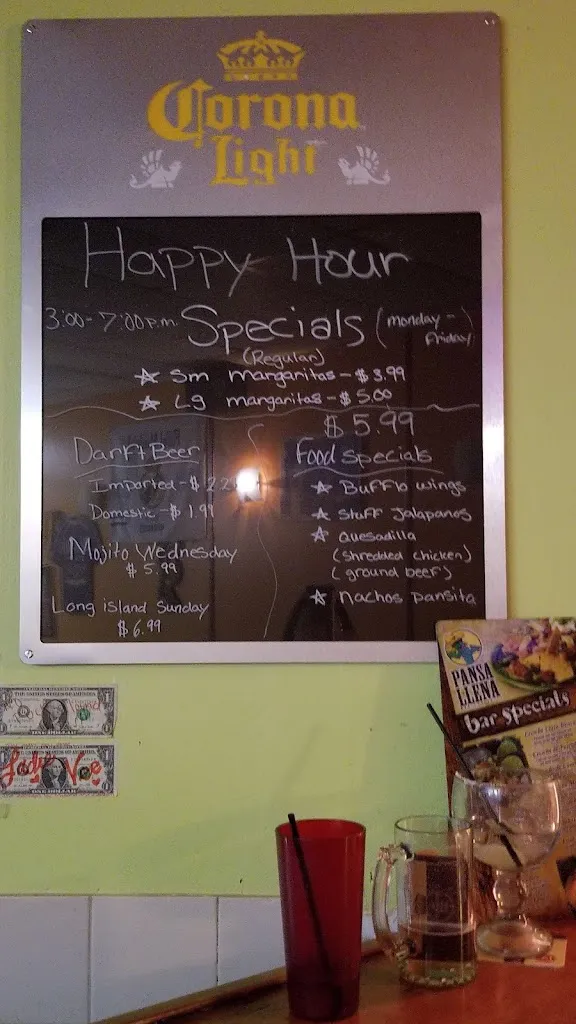 Corona
Light
Happy Hour
3:00-7:00p.m. Specials (monday-
Friday)
(Regular)
☆ Sm margaritas-$3.99
☆ Lg margaritas-$5.00
$5.99
Darft Beer
Imported-$2.2
Domestic-$1.99
Mojito Wednesday
$5.99
Long island Sunday
$6.99
Food specials
☆ Bufflo wings
☆ Stuff Jalapanos
☆ Quesadilla
(shredded chicken)
(ground beef)
☆ Nachos pansita
PANSA
LLENA
bar specials
ONE DOLLAR
ONE DOLLAR